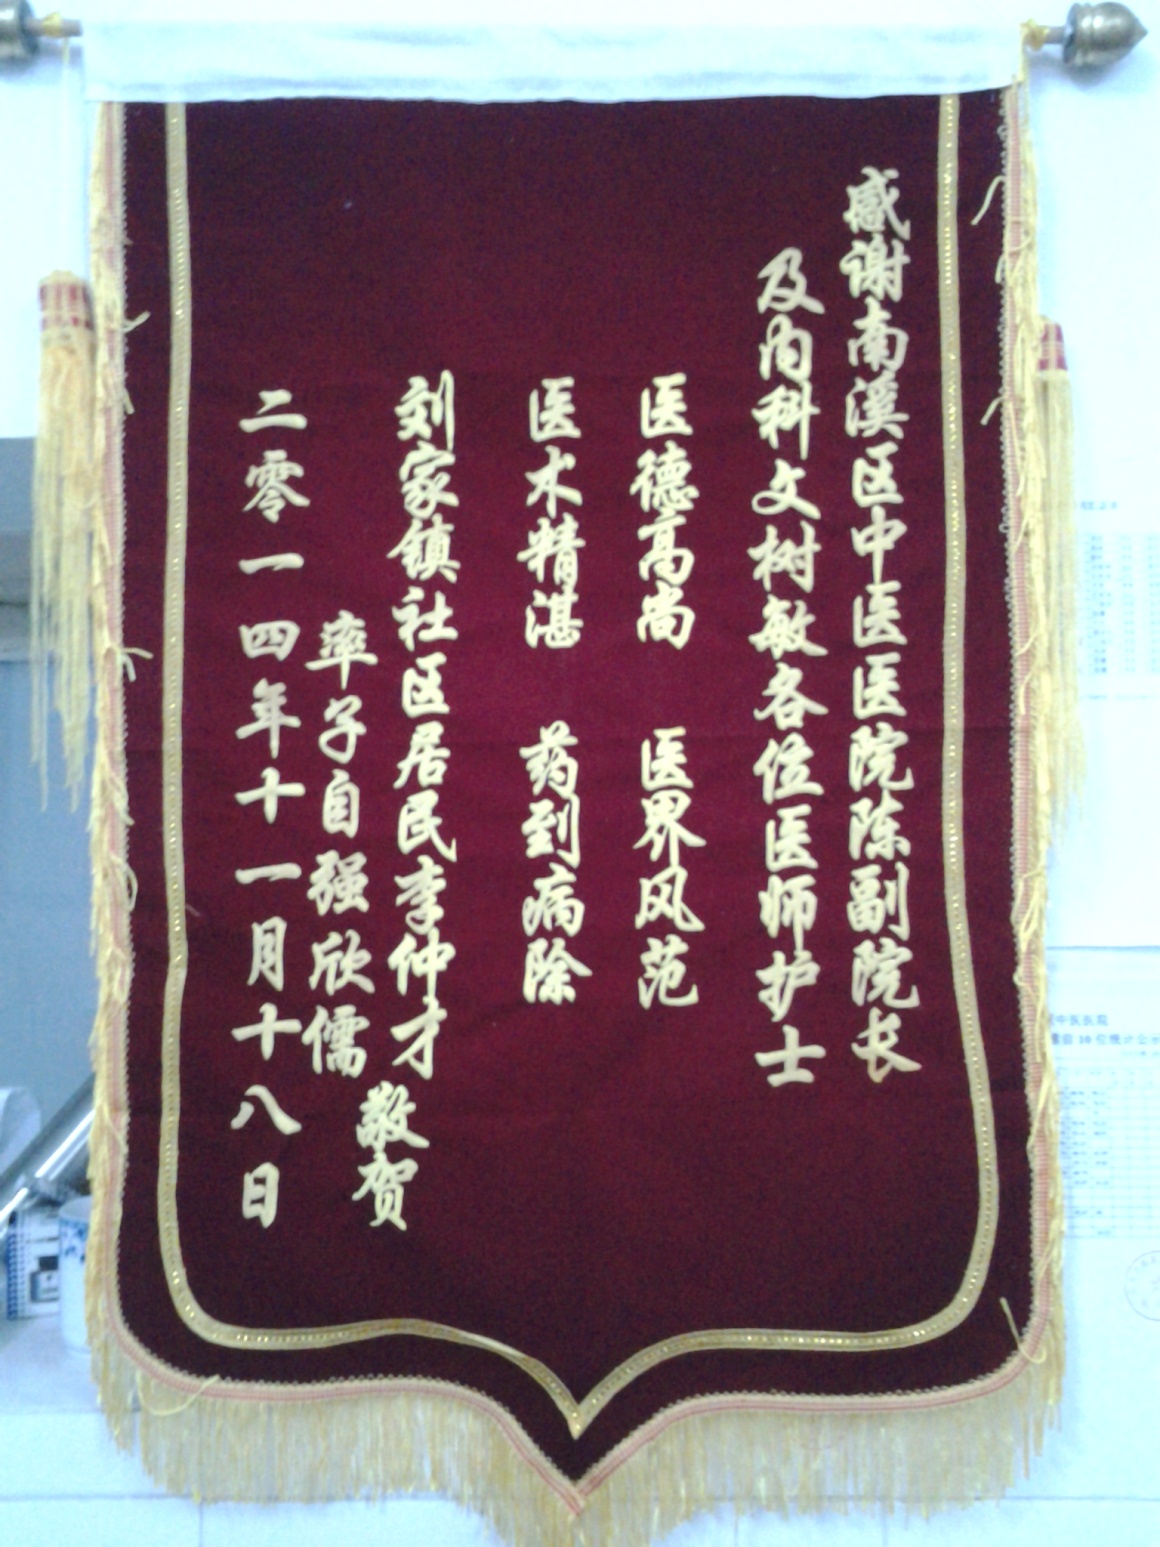 感谢南溪区中医医院陈副院长
及内科文树敏各位医师护士
医德高尚 医界风范
医术精湛 药到病除
刘家镇社区居民李仲才
率子自强欣儒
敬贺
二零一四年十一月十八日
中医医院